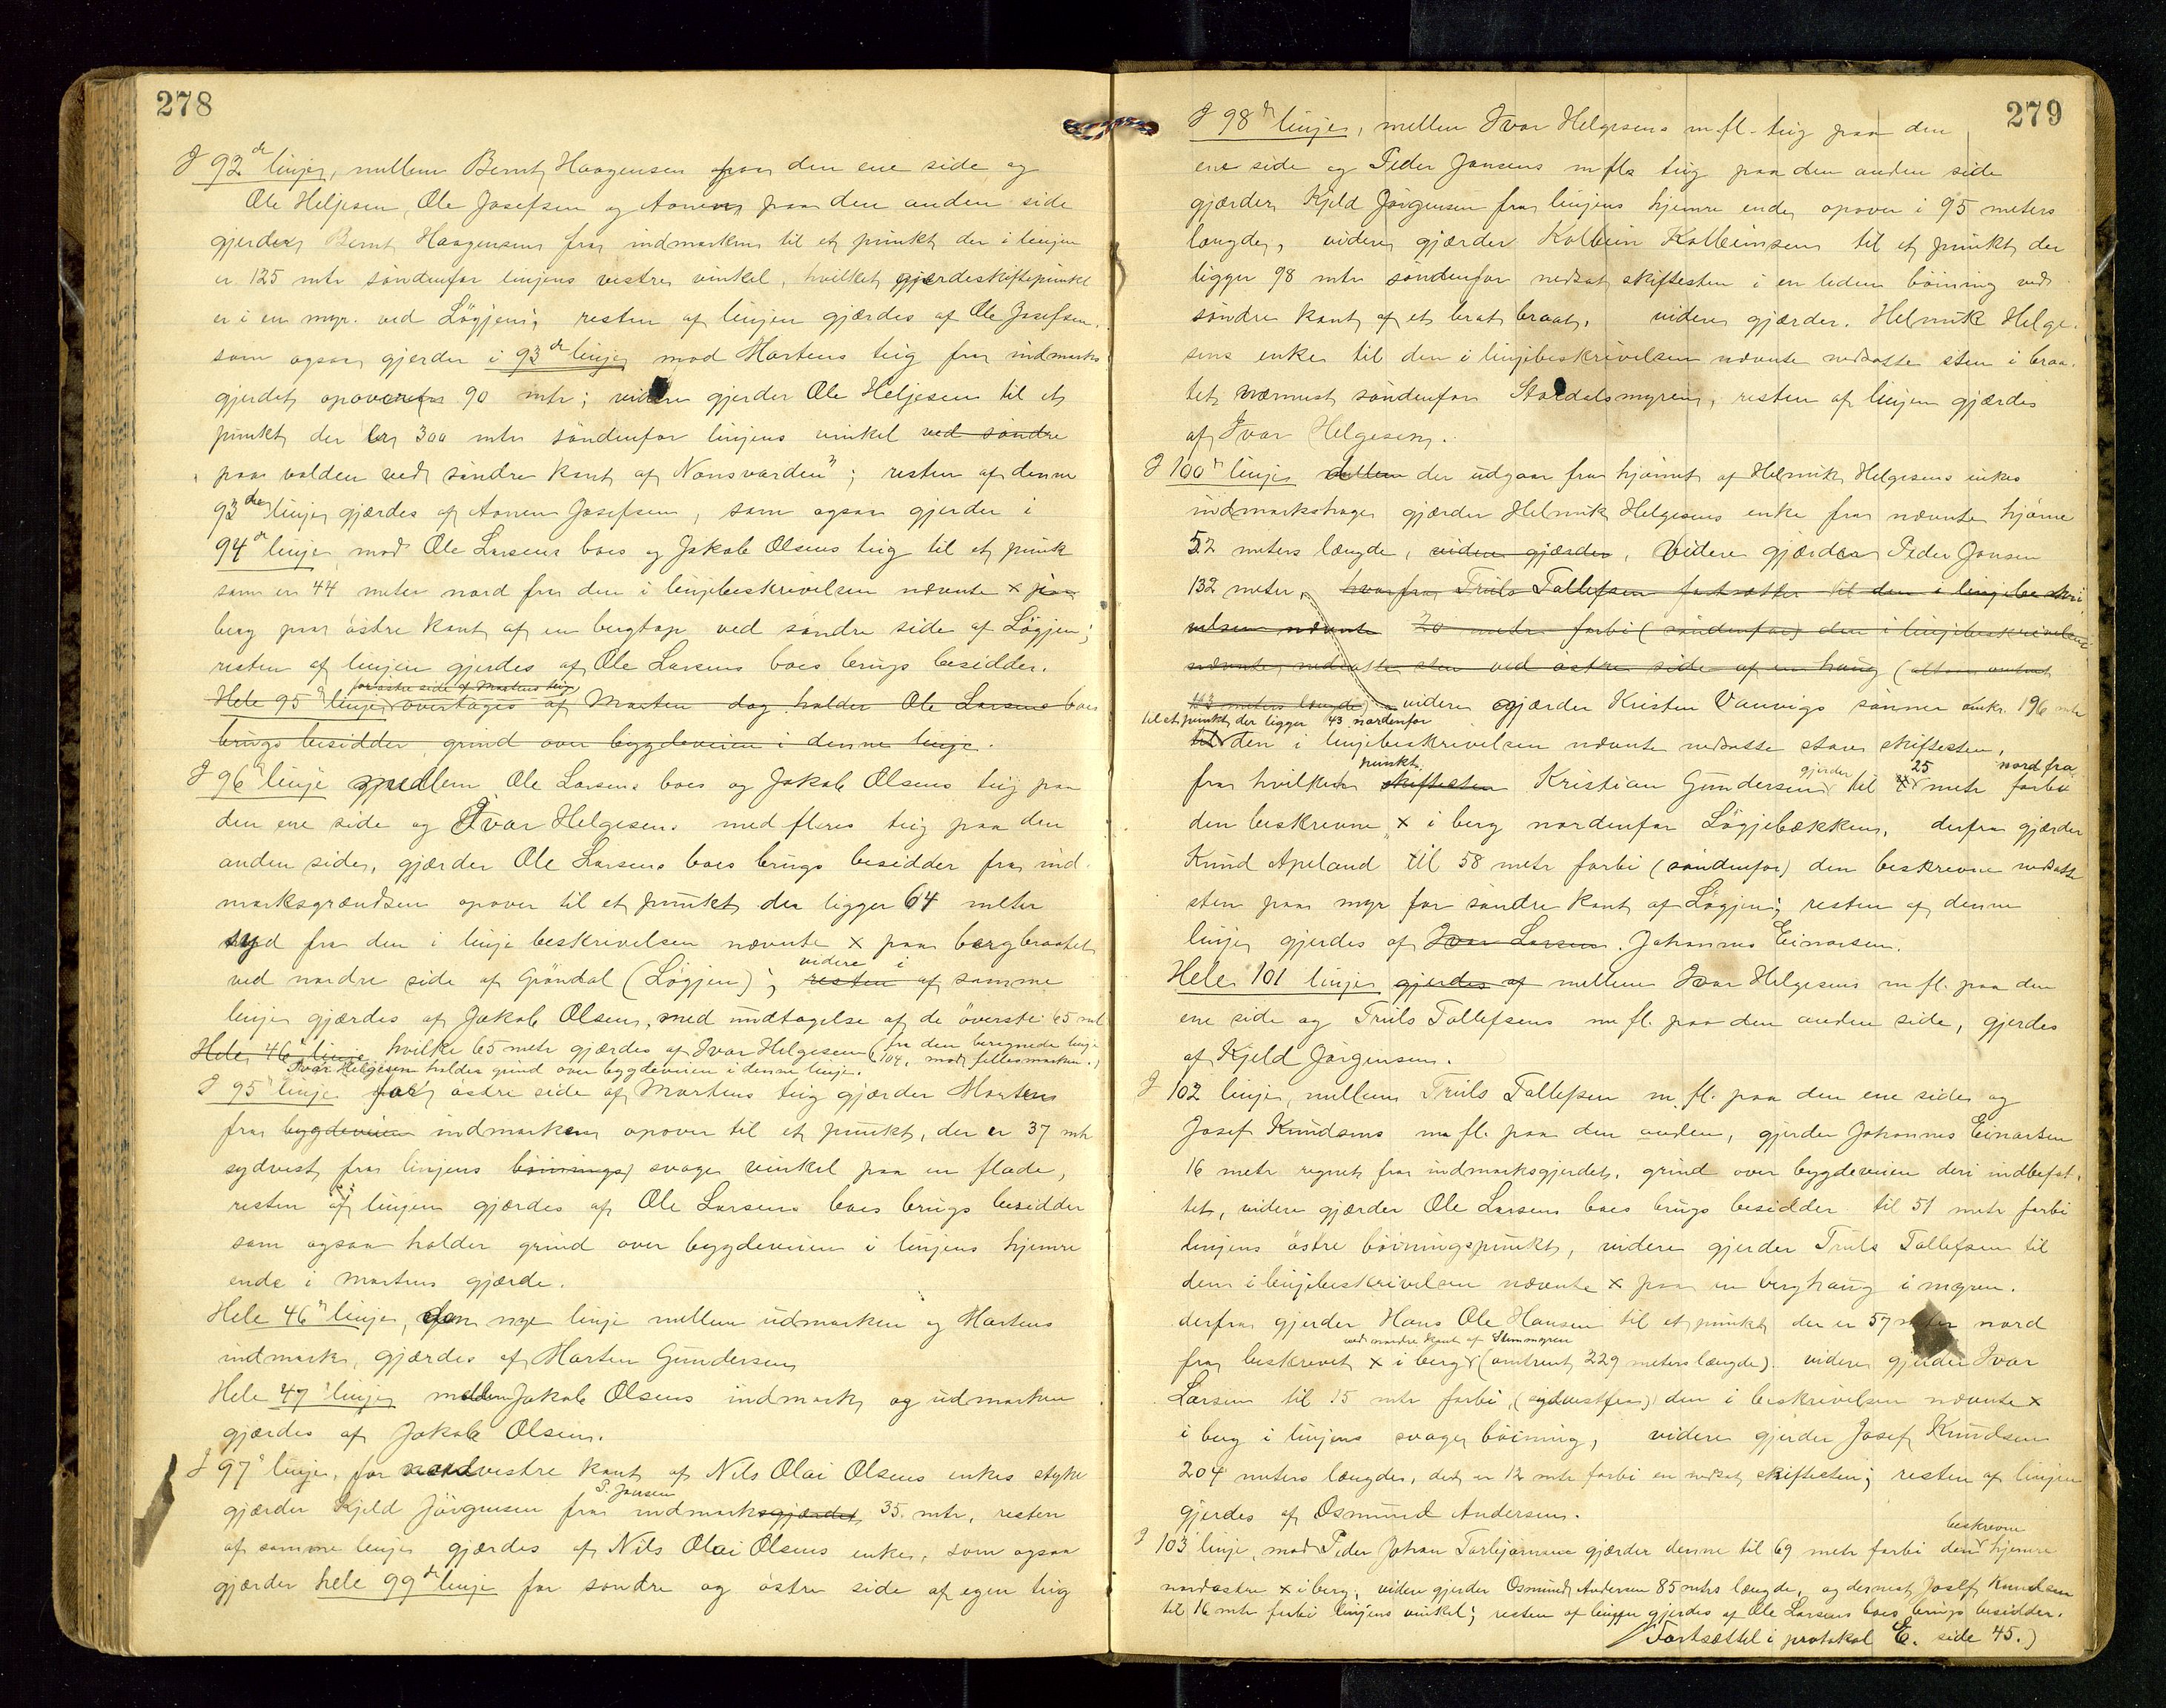 278
I 92de linje, mellem Bernt Haagensen paa den ene side og
Ole Heljesen, Ole Josefsen og Aanen paa den anden side
gjerder Bernt Haagensen fra indmarken til et punkt der i linjen
er 125 mtr söndenfor linjens vestre vinkel, hvilket gjærdeskiftepunkt
er i en myr ved Lögjen; resten af linjen gjærdes af Ole Josefsen,
som ogsaa gjerder i 93de linje mod Martens teig fra indmarks
gjerdet opover 90 mtr; videre gjerder Ole Heljesen til et
punkt der er 300 mtr söndenfor linjens vinkel ved söndre
paa volden ved söndre kant af Nonsvarden"; resten af denne
93de linje gjærdes af Aanen Josefsen, som ogsaa gjerder i
94de linje mod Ole Larsens boes og Jakob Olsens teig til et punk
som er 44 meter nord fra den i linjebeskrivelsen nævnte x i
berg paa östre kant af en bergtop ved söndre side af Lögjen;
resten af linjen gjerdes af Ole Larsens boes brugs besidder.
for östre side af Martens teig
Hele 95de linje overtages af Marten dog holder Ole Larsens boes
brugs besidder grind over bygdeveien i denne linje.
I 96de linje mellem Ole Larsens boes og Jakob Olsens teig paa
den ene side og Ivar Helgesens med fleres teig paa den
anden side, gjærder Ole Larsens boes brugs besidder fra ind-
marksgrændsen opover til et punkt der ligger 64 meter
syd fra den i linje beskrivelsen nævnte x paa bergbraatet
videre i
ved nordre side af Gröndal (Lögjen); resten af samme
linje gjærdes af Jakob Olsen, med undtagelse af de överste 65 mt
Hele 46de linje hvilke 65 metr gjærdes af Ivar Helgesen (fra den beregnede linje
104, mod fellesmarken.)
Ivar Helgesen holder grind over bygdeveien i denne linje.
I 95de linje for östre side af Martens teig gjærder Marten
fra bygdeveien indmarken opover til et punkt, der er 37 mtr
sydvest fra linjens böinings svage vinkel paa en flade,
resten af linjen gjærdes af Ole Larsens boes brugs besidder
som ogsaa holder grind over bygdeveien i linjens hjemre
ende i Martens gjærde.
Hele 46de linje, den nye linje mellem udmarken og Martens
indmark, gjærdes af Marten Gundersen
Hele 47de linje mellem Jakob Olsens indmark og udmarken
gjærdes af Jakob Olsen.
I 97de linje, for nordvestre kant af Nils Olai Olsens enkes stykke
P. Jansen
gjærder Kjeld Jörgensen fra indmarksgjærdet 35. mtr, resten
af samme linje gjærdes af Nils Olai Olsens enke, som ogsaa
gjærder hele 99de linje for söndre og östre side af egen teig
279
I 98de linje, mellem Ivar Helgesens m fl. teig paa den
ene side og Peder Jansens m fls teig paa den anden side
gjærder Kjeld Jörgensen fra linjens hjemre ende opover i 95 meters
længde, videre gjærder Kolbein Kolbeinsen til et punkt der
ligger 98 mtr söndenfor nedsat skiftesten i en liden böining ved
söndre kant af et brat braat, videre gjærder Helmik Helge-
sens enke til den i linjebeskrivelsen nævnte nedsatte sten i braa-
tet nærmest söndenfor Stordelsmyren, resten af linjen gjærdes
af Ivar Helgesen.
I 100de linje der udgaar fra hjörnet af Helmik Helgesens enkes
indmarkshage gjærder Helmik Helgesens enke fra nævnte hjörne
52 meters længde, videre gjærder, Videre gjærder Peder Jansen
132 meter, hvorfra Truls Tallefsen fortsætter til den i linjebeskri
velsen nævnte 20 metr forbi (söndenfor) den i linjebeskrivelsen
nævnte, nedsatte sten ved östre side af en haug (altsaa omtrent
113 meters længde) videre gjærder Kristen Vanvigs sönner omkr. 196 mtr
til et punkt, der ligger 43 nordenfor
til den i linjebeskrivelsen nævnte nedsatte store skiftesten,
punkt gjerder 25 nord fra
fra hvilken skiftesten Kristian Gundersen til metr forbi
den beskrevne x i berg nordenfor Lögjebækken, derfra gjærder
Knud Apeland til 58 metr forbi (söndenfor) den beskrevne nedsatte
sten paa myr for söndre kant af Lögjen; resten af denne
linje gjerdes af Ivar Larsen. Johannes Einarsen.
Hele 101 linje gjerdes af mellem Ivar Helgesens m fl. paa den
ene side og Truls Tallefsens m fl. paa den anden side, gjerdes
af Kjeld Jörgensen.
I 102 linje, mellem Truls Tallefsen m. fl. paa den ene side og
Josef Knudsens m fl. paa den anden, gjerder Johannes Einarsen
16 metr regnet fra indmarksgjerdet, grind over bygdeveien deri indbefat-
tet, videre gjærder Ole Larsens boes brugs besidder til 51 metr forbi
linjens östre böiningspunkt, videre gjerder Truls Tallefsen til
den i linjebeskrivelsen nævnte x paa en berghaug i myren.
derfra gjerder Hans Ole Hansen til et punkt der er 57 meter nord
ved nordre kant af Slemmyren
fra beskrevet x i berg (omtrent 229 meters længde). videre gjerder Ivar
Larsen til 15 mtr forbi, (sydvestfra) den i beskrivelsen nævnte x
i berg i linjens svage böining, videre gjerder Josef Knudsen
204 meters længde, det er 12 mtr forbi en nedsat skiftesten; resten af linjen
gjerdes af Osmund Andersen.
beskrevne
I 103 linje, mod Peder Johan Torbjörnsens gjærder denne til 69 metr forbi den hjemre
nordöstre x i berg, videre gjerder Osmund Andersen 85 mtrs længde, og dernest Josef Knudsen
til 16 mtr forbi linjens vinkel; resten af linjen gjerdes af Ole Larsens boes brugs besidder.
(Fortsættel i protokol E. side 45.)